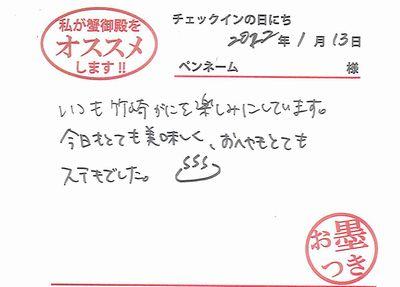 私が蟹御殿を
オススメ
します!!
チェックインの日にち
2022年1月13日
ペンネーム 様
いつも竹崎がにを楽しみにしています。
今日もとても美味しく、おへやもとても
ステキでした。
お墨
つき